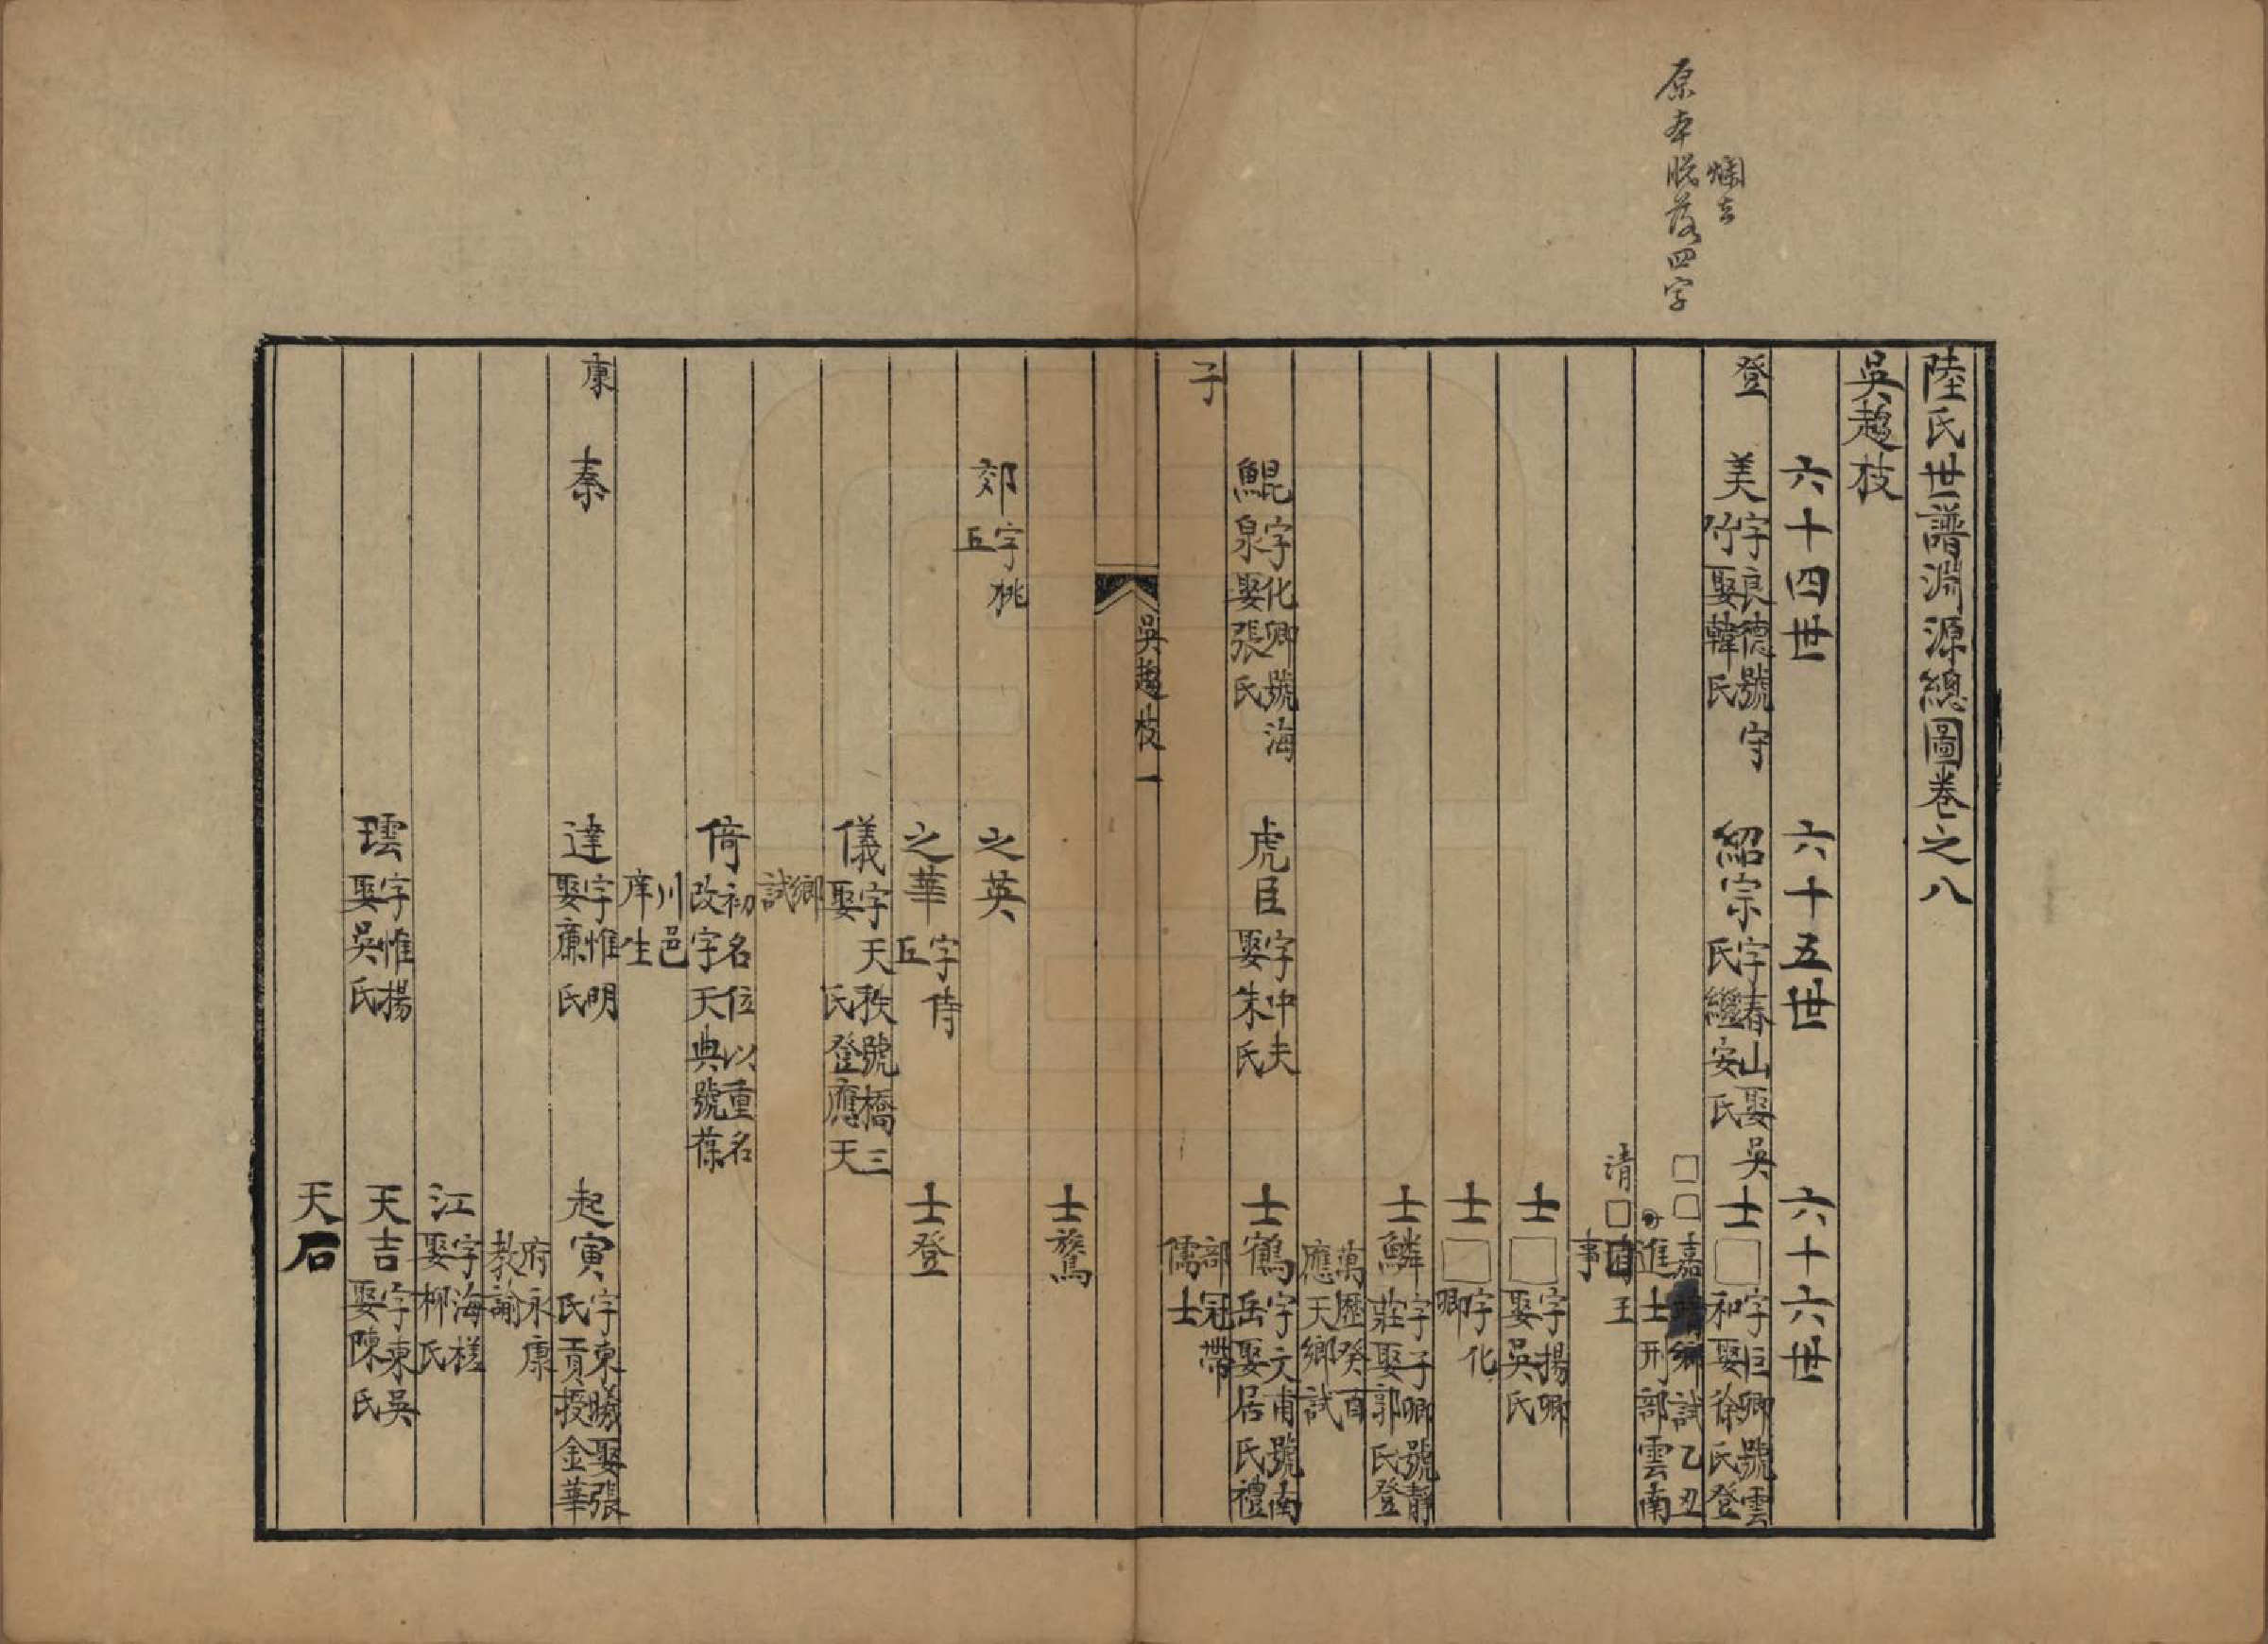 原本脫落四字
爛去
陸氏世譜淵源總圖卷之八
吳趨枝
六十四世　六十五世　六十六世
登　美字良德號守竹娶韓氏　紹宗字春山娶吳氏繼安氏　士□字巨卿號雲和娶徐氏登
□□嘉靖鄉試乙丑進士刑部雲南
清□司主事
士□字揚卿娶吳氏
士□字化卿
士鱗字子卿號靜莊娶郭氏登
萬歷癸酉應天鄉試
鯤字化卿號海泉娶張氏　虎臣字中夫娶朱氏　士鶴字文甫號南岳娶居氏禮
子　部冠帶儒士
吳趨枝　一
士鷔
郊字桃丘　之英
之華字侍丘　士登
儀字天秩號橋三娶氏登應天
鄉試
倚初名位以重名改字天典號葆
川邑庠生
康　秦　達字惟明娶廉氏　起寅字東曦娶張氏貢授金華
府永康教諭
江字海槎娶柳氏
瑻字惟揚娶吳氏　天吉字東吳娶陳氏
天石